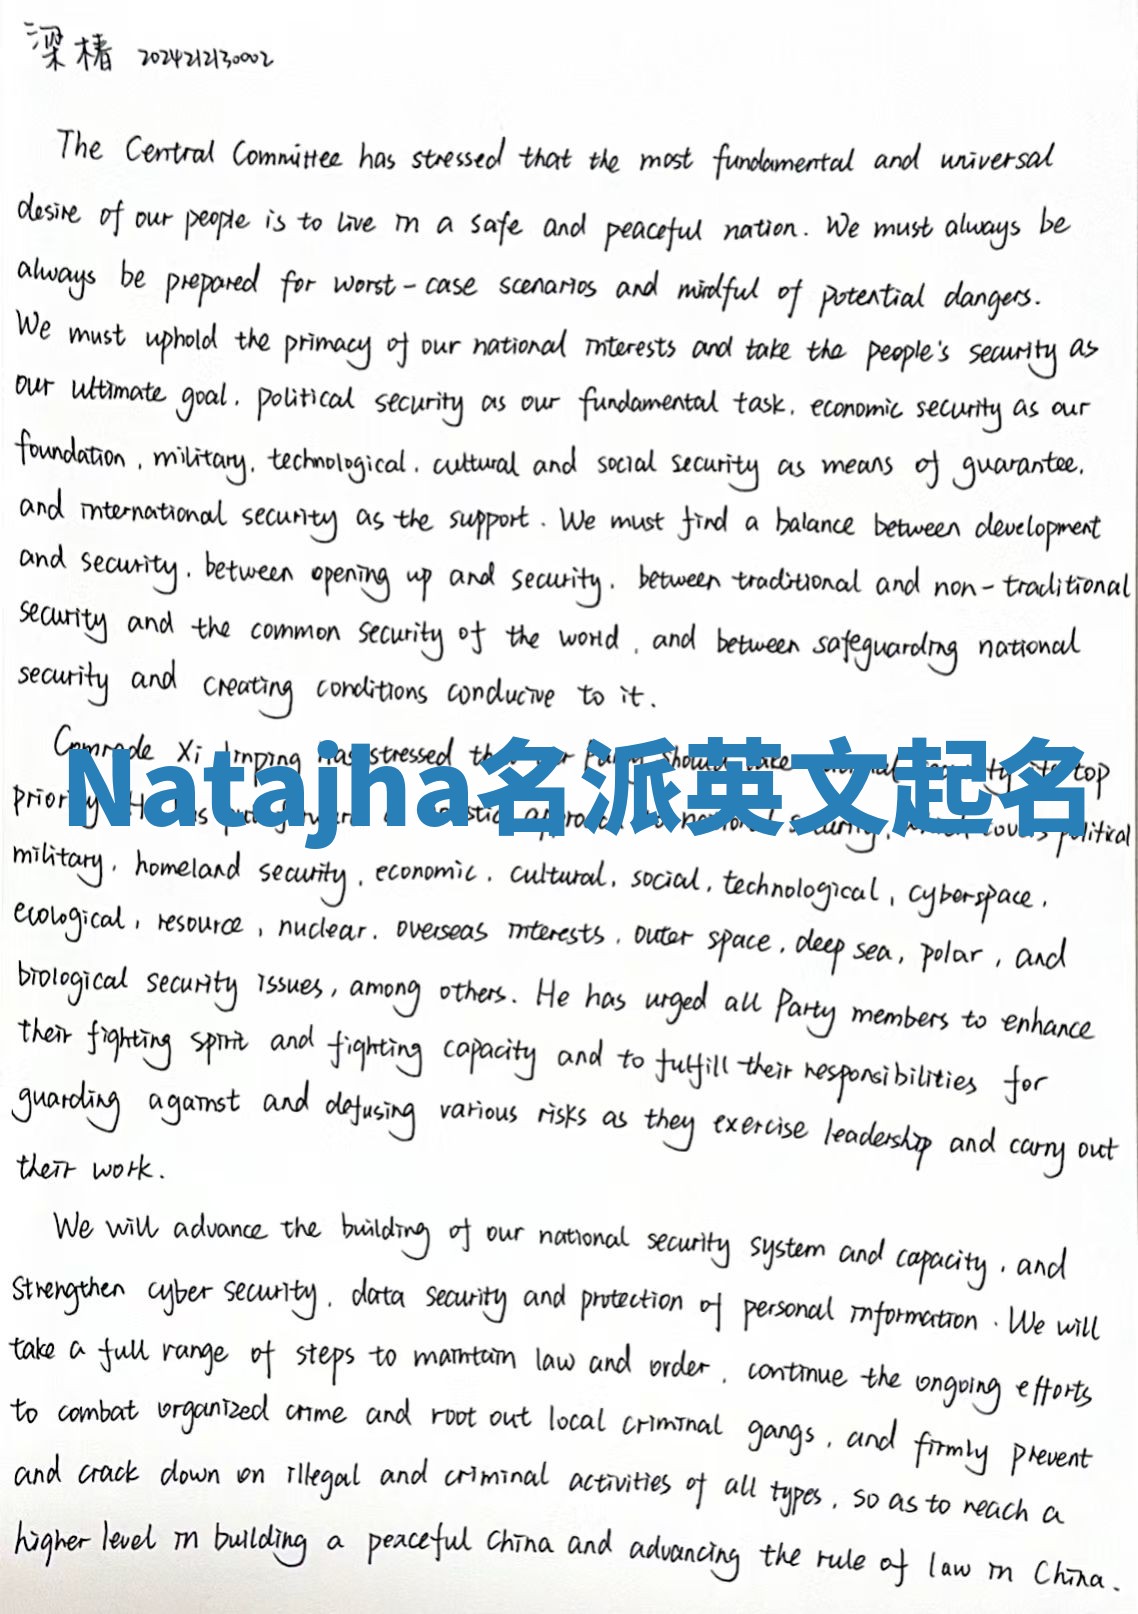 梁椿 2024212130002
The Central Committee has stressed that the most fundamental and universal
desire of our people is to live in a safe and peaceful nation. We must always be
always be prepared for worst-case scenarios and mindful of potential dangers.
We must uphold the primacy of our national interests and take the people's security as
our ultimate goal, political security as our fundamental task, economic security as our
foundation, military, technological, cultural and social security as means of guarantee,
and international security as the support. We must find a balance between development
and security, between opening up and security, between traditional and non-traditional
security and the common security of the world, and between safeguarding national
security and creating conditions conducive to it.
Comrade Xi Jinping has stressed top
Natajha名派英文起名
priority political
military, homeland security, economic, cultural, social, technological, cyberspace,
ecological, resource, nuclear, overseas interests, outer space, deep sea, polar, and
biological security issues, among others. He has urged all Party members to enhance
their fighting spirit and fighting capacity and to fulfill their responsibilities for
guarding against and defusing various risks as they exercise leadership and carry out
their work.
We will advance the building of our national security system and capacity, and
strengthen cyber security, data security and protection of personal information. We will
take a full range of steps to maintain law and order, continue the ongoing efforts
to combat organized crime and root out local criminal gangs, and firmly prevent
and crack down on illegal and criminal activities of all types, so as to reach a
higher level in building a peaceful China and advancing the rule of law in China.